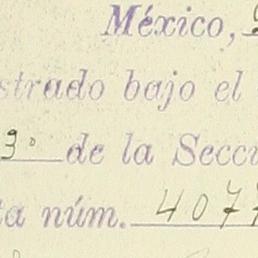 México,
strado bajo el
3° de la Secci
ta núm. 4077